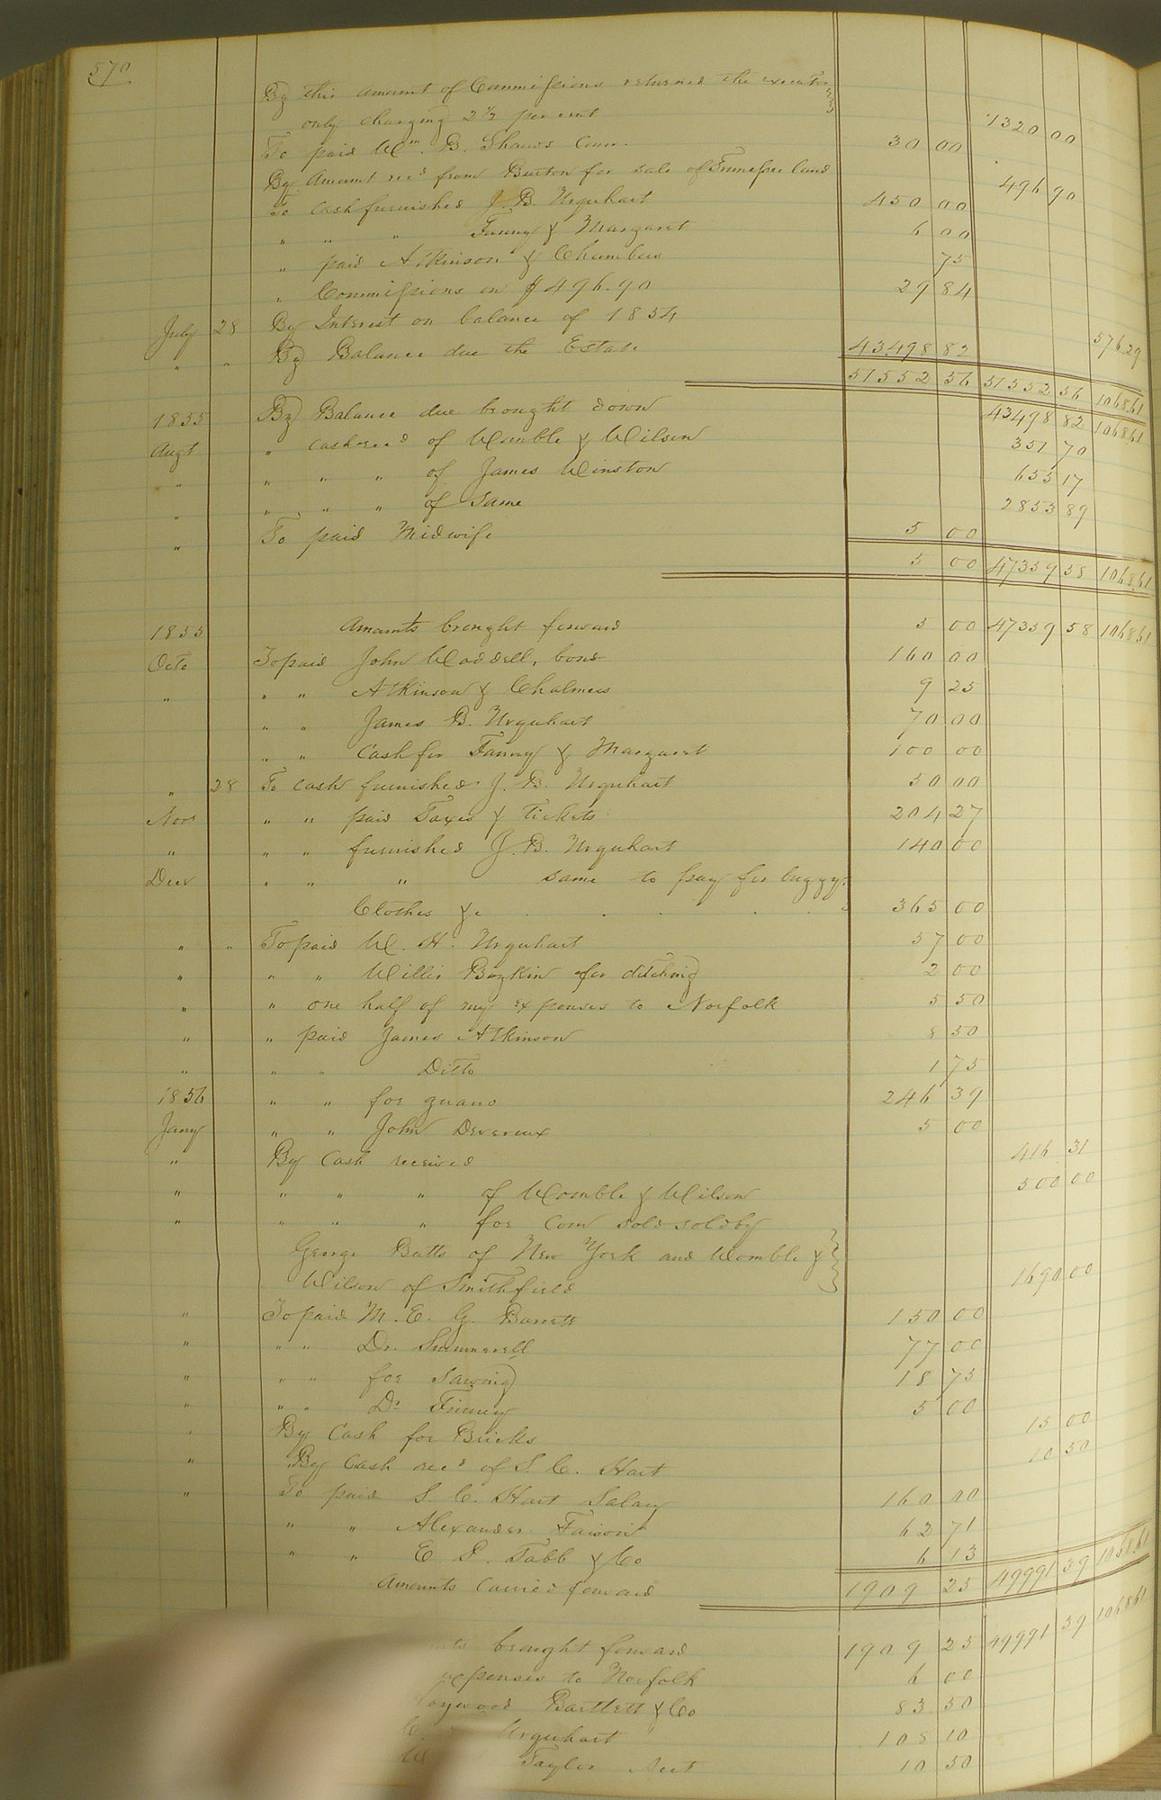 570
By this amount of Commissions returned the executor
only charging 2 1/2 per cent 1320 00
To paid Wm. B. Shaws Com. 30 00
By Amount recd from Burton for sale of Tennessee land 496 90
To Cash furnished J. B. Urquhart 450 00
" " " Fanny & Margaret 6 00
" paid Atkinson & Chambers 75
" Commissions on $496.90 29 84
July 28 By Interest on balance of 1854 576 29
" " By Balance due the Estate 43498 82
51552 56 51552 56 1068 61
1855 By Balance due brought down 43498 82 1068 61
Augt " cash recd of Womble & Wilson 351 70
" " " " of James Winston 655 17
" " " " of Same 2853 89
" To paid Midwife 5 00
5 00 47359 58 1068 61
1855 Amounts brought forward 5 00 47359 58 1068 61
Octo To paid John Waddell, bond 160 00
" " " Atkinson & Chalmers 9 25
" " James B. Urquhart 70 00
" " Cash for Fanny & Margaret 100 00
" 28 To cash furnished J. B. Urquhart 50 00
Novr " " paid Taxes & Tickets 204 27
" " " furnished J. B. Urquhart 140 00
Decr " " " same to pay for buggy,
Clothes &c . . . . . 365 00
" " To paid W. H. Urquhart 57 00
" " " Willis Boykin for ditching 2 00
" " one half of my expenses to Norfolk 5 50
" " paid James Atkinson 8 50
" " " Ditto 1 75
1856 " " for guano 246 39
Jany " " John Devereux 5 00
" By Cash received 416 31
" " " " of Womble & Wilson 500 00
" " " " for Corn sold sold by
George Batts of New York and Womble &
Wilson of Smithfield 1690 00
" To paid M. E. G. Barrett 150 00
" " " Dr. Summerell 77 00
" " " for Sawing 18 75
" " " Dr Finney 5 00
" By Cash for Bricks 15 00
" By Cash recd of S. C. Hart 10 50
" To paid S. C. Hart Salary 160 00
" " Alexander Faison 62 71
" " E. P. Tabb & Co 6 13
Amounts carried forward 1909 25 49991 39 1068 61
brought forward 1909 25 49991 39 1068 61
expenses to Norfolk 6 00
Bartlett & Co 83 50
Urquhart 105 10
Taylor 10 50